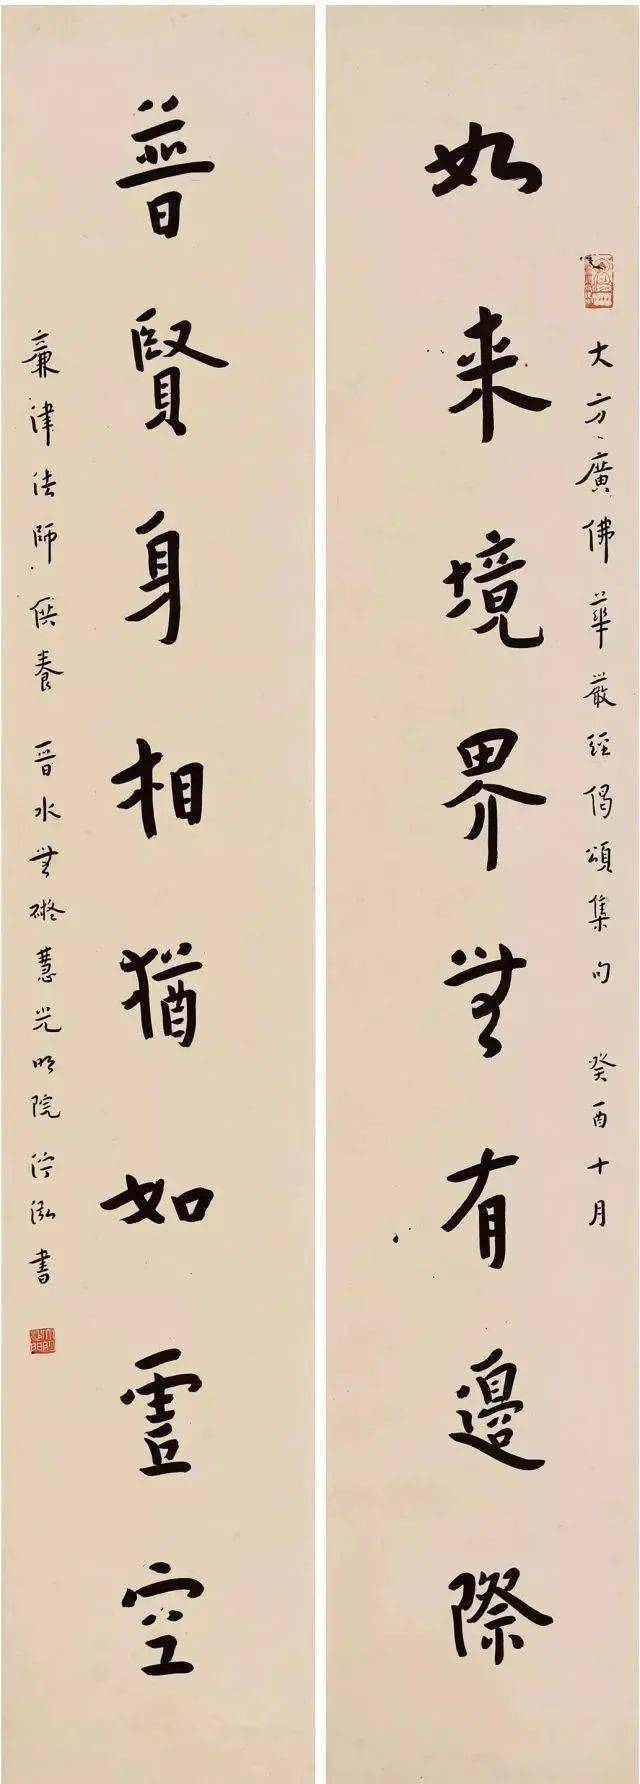 大方廣佛華嚴經偈頌集句 癸酉十月
如来境界無有邊際
普賢身相猶如虛空
廉津法師供養 晉水無礙慧光明院沙門 書